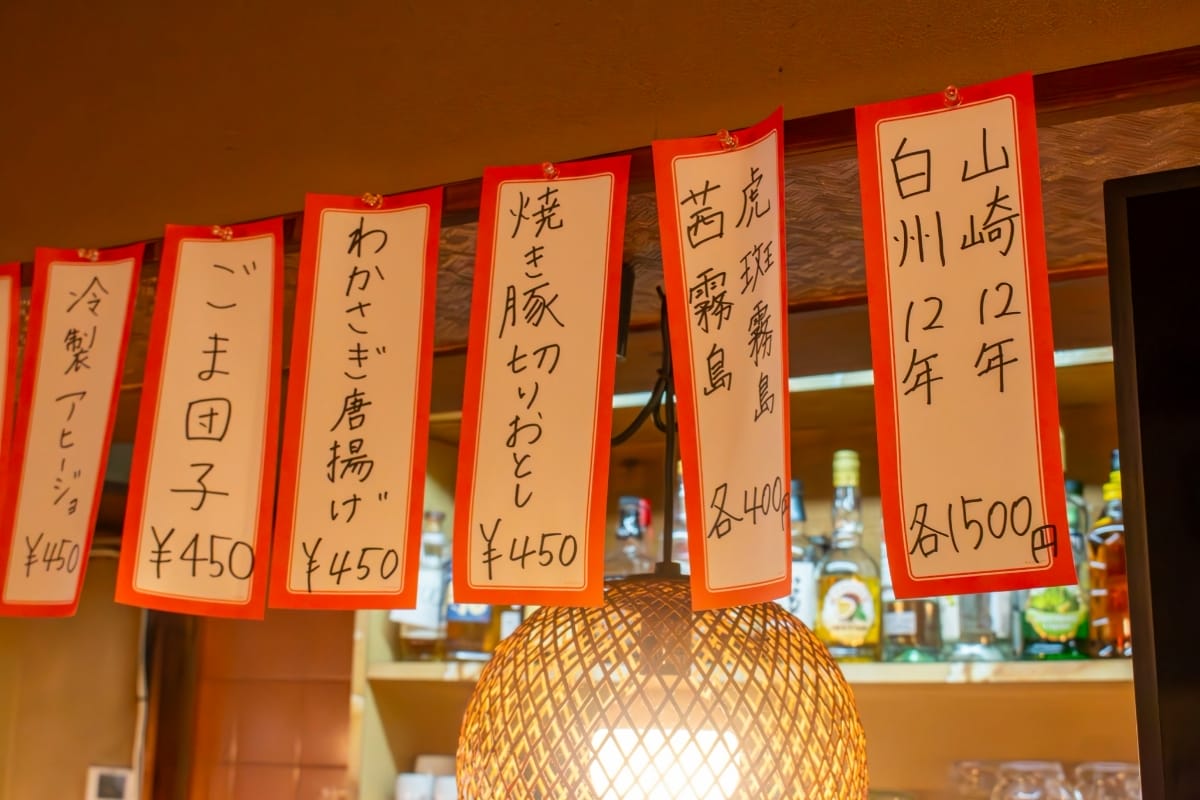 山崎 12年
白州 12年
各1500円
虎斑霧島
茜霧島
各400円
焼き豚切りおとし
¥450
わかさぎ唐揚げ
¥450
ごま団子
¥450
冷製アヒージョ
¥450